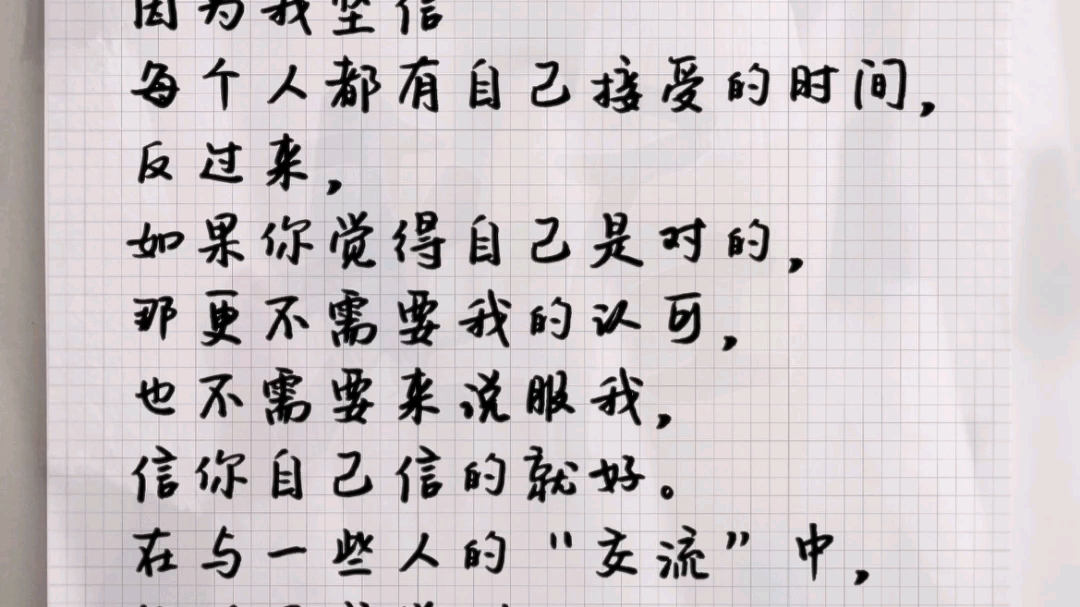 因为我坚信
每个人都有自己接受的时间,
反过来,
如果你觉得自己是对的,
那更不需要我的认可,
也不需要来说服我,
信你自己信的就好。
在与一些人的“交流”中,